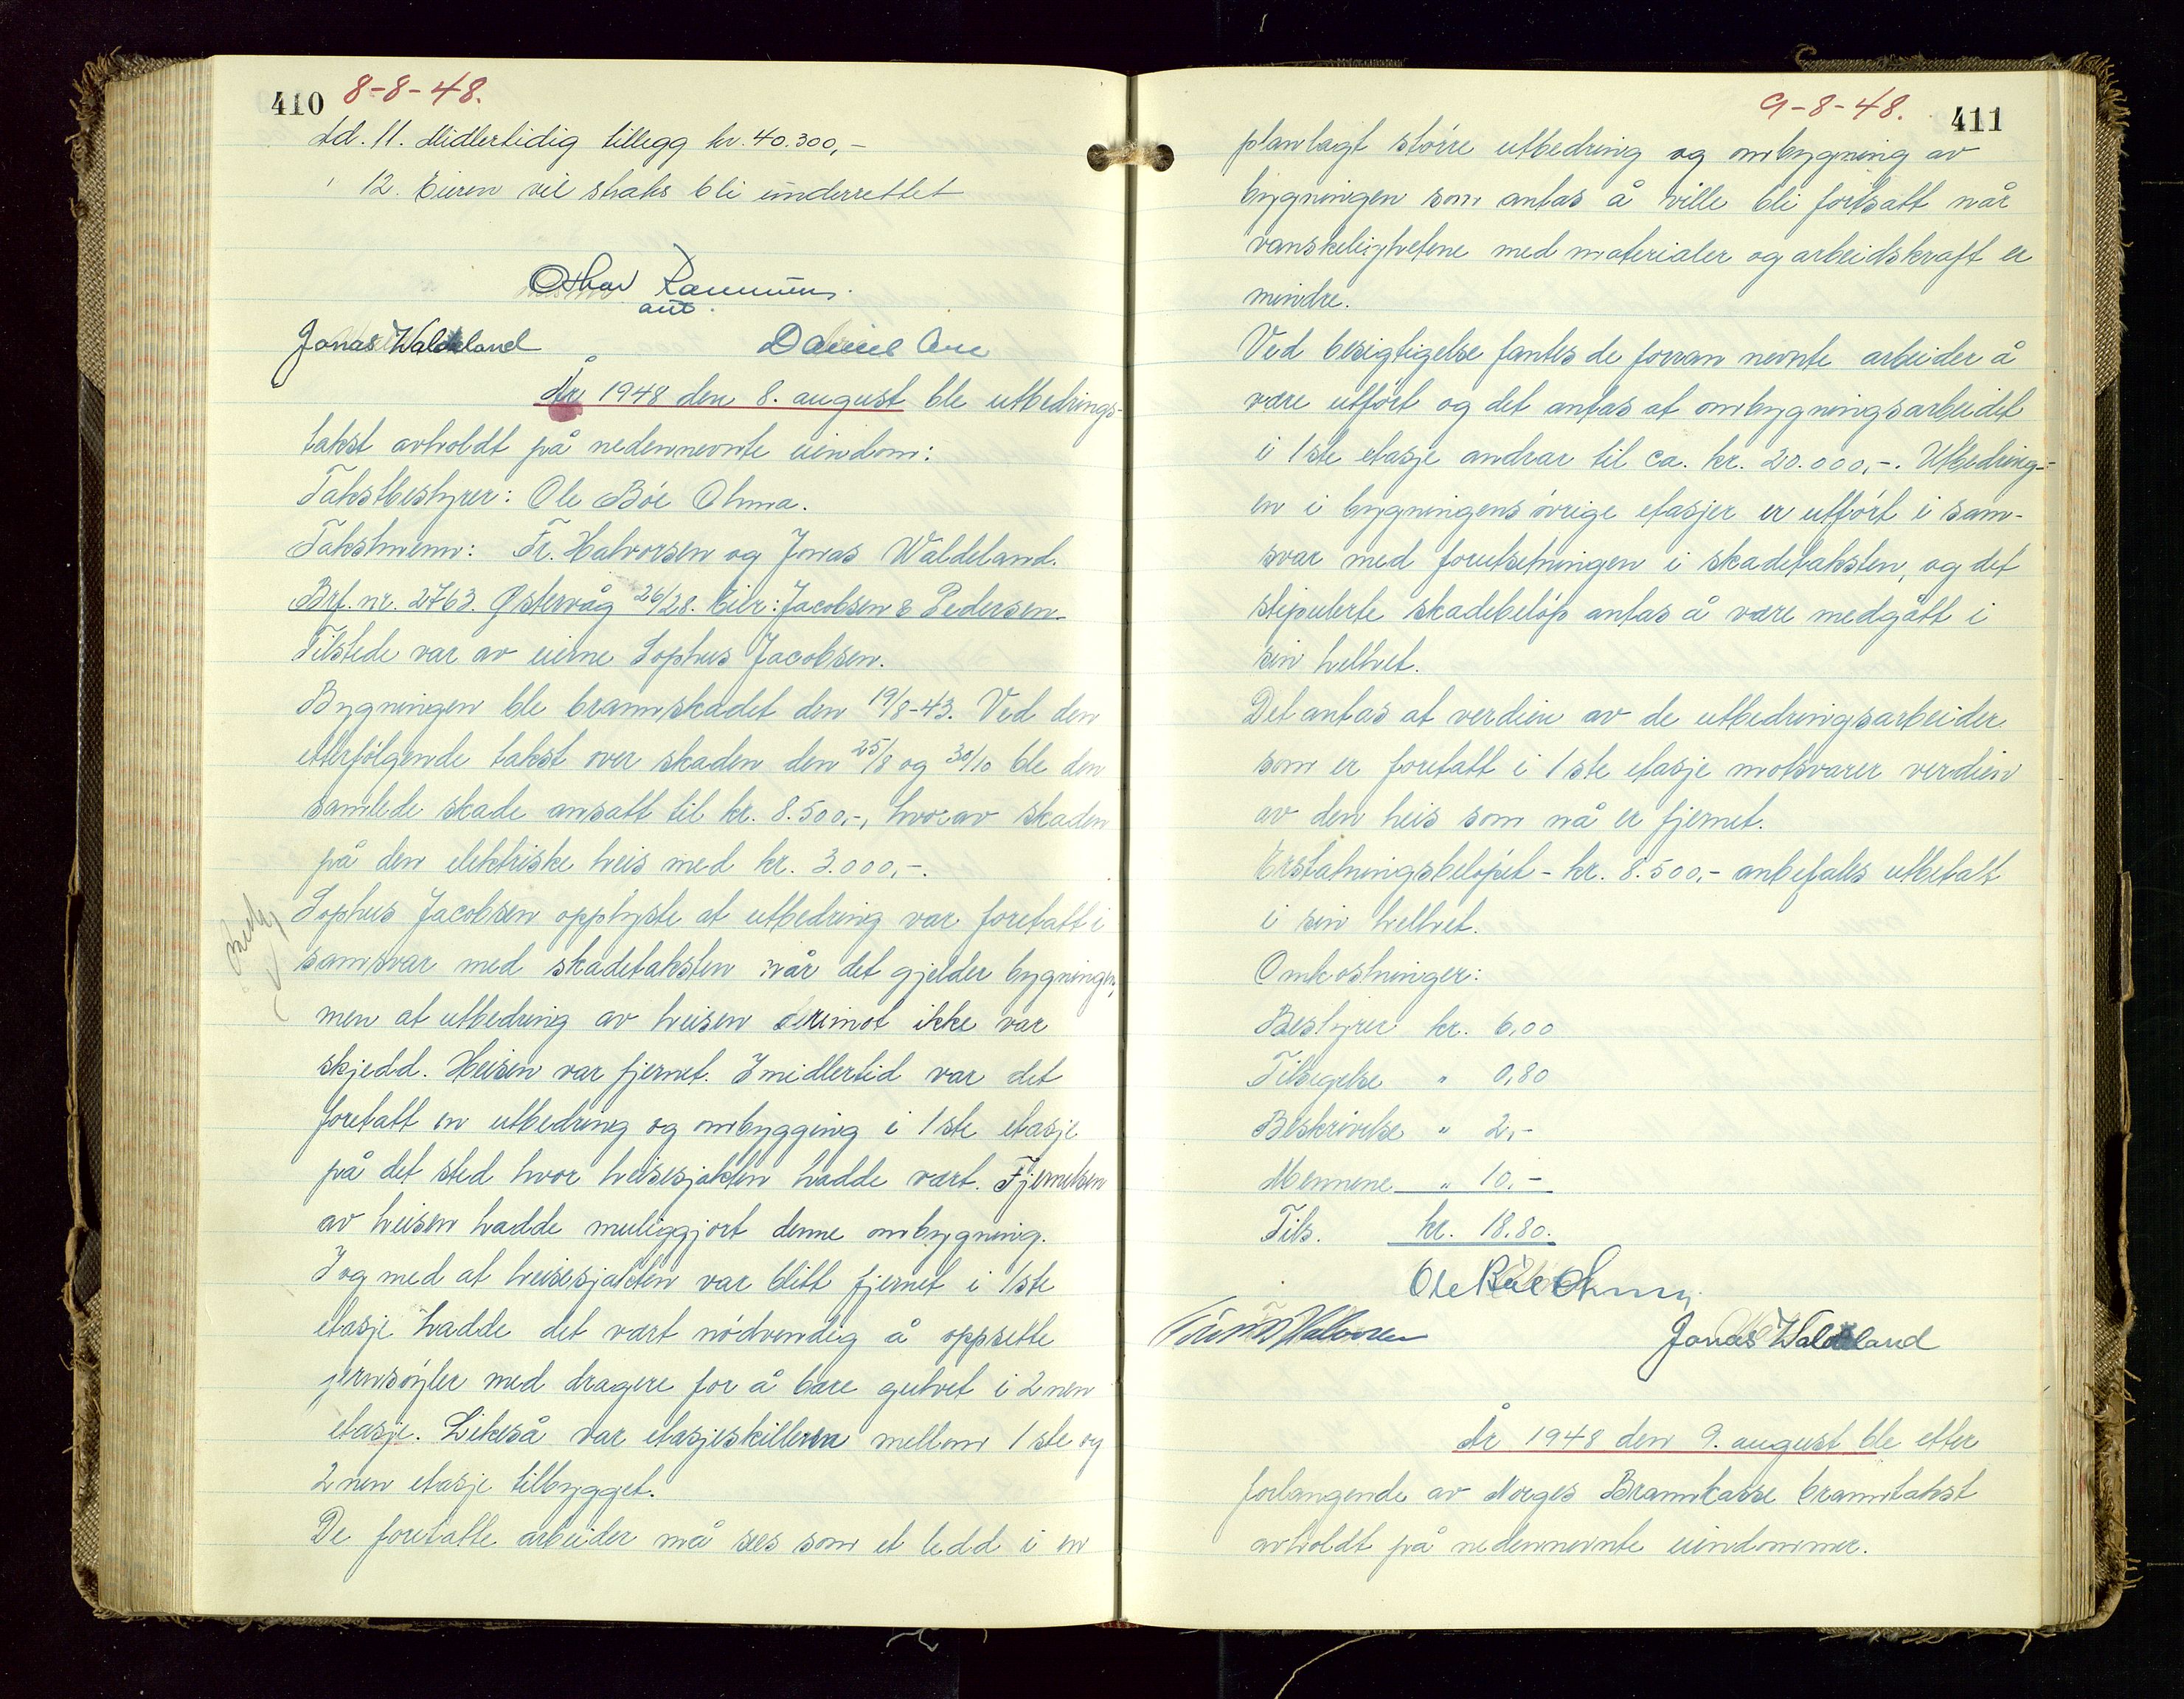 410 8-8-48.
Ad. 11. Midlertidig tillegg kr. 40.300,-
" 12. Eieren vil straks bli underrettet
aut.
Jonas Waldeland Daniel
År 1948 den 8. august ble utbedrings-
takst avholdt på nedennevnte eiendom:
Takstbestyrer: Ole Böe Ohma.
Takstmenn: Fr. Halvorsen og Jonas Waldeland.
Brf. nr. 2763. Østervåg 26/28. Eier: Jacobsen & Pedersen.
Tilstede var av eierne Sophus Jacobsen.
Bygningen ble brannskadet den 19/8-43. Ved den
etterfölgende takst over skaden den 25/8 og 30/10 ble den
samlede skade ansatt til kr. 8.500,-, hvorav skaden
på den elektriske heis med kr. 3.000,-.
Sophus Jacobsen opplyste at utbedring var foretatt i
samsvar med skadetaksten når det gjelder bygningen,
men at utbedring av heisen derimot ikke var
skjedd. Heisen var fjernet. Imidlertid var det
foretatt en utbedring og ombygging i 1ste etasje
på det sted hvor heisesjakten hadde vært. Fjernelsen
av heisen hadde muliggjort denne ombygning.
I og med at heisesjakten var blitt fjernet i 1ste
etasje hadde det vært nödvendig å oppsette
jernsöyler med dragere for å bære gulvet i 2nen
etasje. Likeså var etasjeskilleren mellom 1ste og
2nen etasje tilbygget.
De foretatte arbeider må sees som et ledd i en
9-8-48. 411
planlagt större utbedring og ombygning av
bygningen som antas å ville bli fortsatt når
vanskelighetene med materialer og arbeidskraft er
mindre.
Ved besigtigelse fantes de forran nevnte arbeider å
være utfört og det antas at ombygningsarbeidet
i 1ste etasje andrar til ca. kr. 20.000,-. Utbedring-
en i bygningens övrige etasjer er utfört i sam-
svar med forutsetningen i skadetaksten, og det
stipulerte skadebelöp antas å være medgått i
sin helhet.
Det antas at verdien av de utbedringsarbeider
som er foretatt i 1ste etasje motsvarer verdien
av den heis som nå er fjernet.
Erstatningsbelöpet - kr. 8.500,- anbefales utbetalt
i sin helhet.
Omkostninger:
Bestyrer kr. 6,00
Tilsigelse " 0,80
Beskrivelse " 2,-
Mennene " 10,-
Tils. kr. 18.80.
Ole Böe Ohma
Halvorsen Jonas Waldeland
År 1948 den 9. august ble etter
forlangende av Norges Brannkasse branntakst
avholdt på nedennevnte eiendommer.